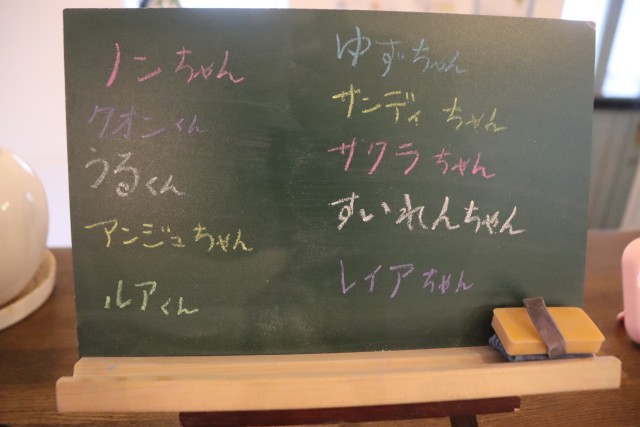 ノンちゃん
クオンくん
うるくん
アンジュちゃん
ルアくん
ゆずちゃん
サンディちゃん
サクラちゃん
すいれんちゃん
レイアちゃん